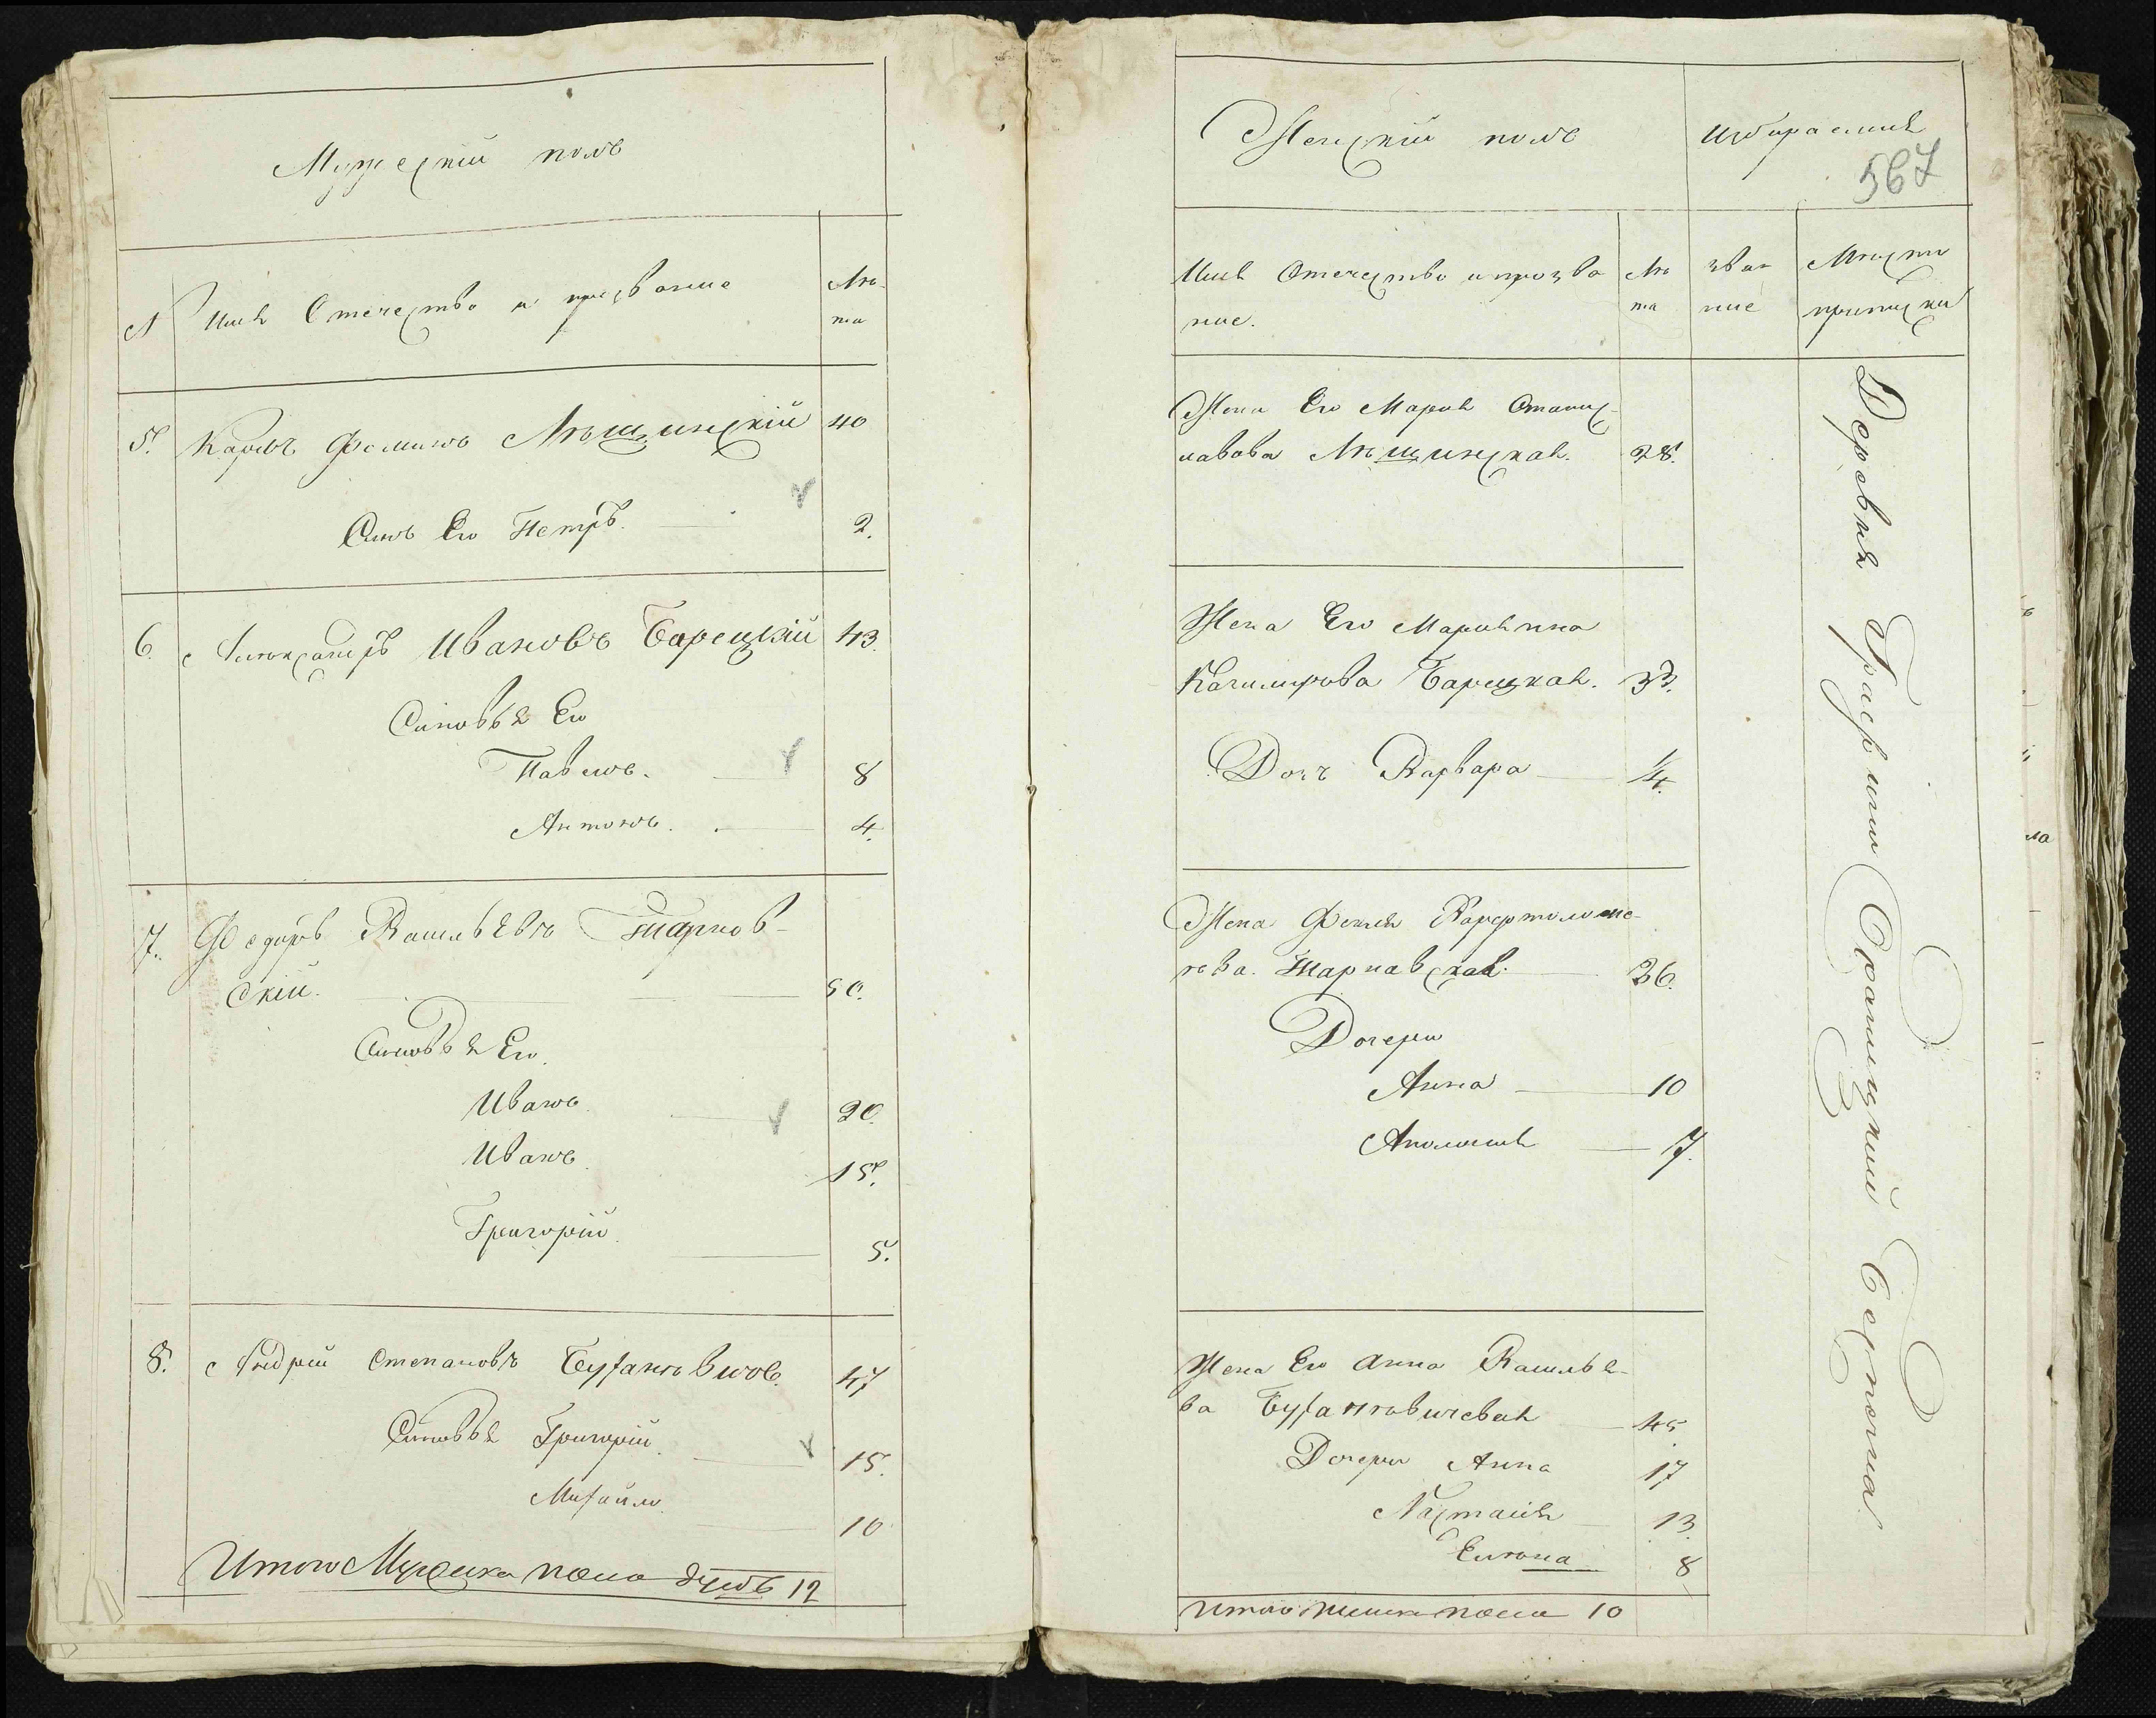 Мужескій полъ
№ Имя Отечество и прозвание Лѣ-
та
5. Карлъ Фоминъ Лѣшинскій 40
Сынъ Его Петръ. 2.
6. Александръ Ивановъ Барецкій 43.
Сыновья Его
Павелъ. 8
Антонъ. 4.
7. Федоръ Васильевъ Тарнов-
скій. 50.
Сыновья Его.
Иванъ. 20.
Иванъ. 15.
Григорій. 5.
8. Андрей Степановъ 47
Сыновья Григорій. 15.
Михайло. 10
Итого Мужеска пола душъ 12
Женскій полъ Избираемыя
567
Имя Отечество и прозва
ние. Лѣ
та зва
ние Мѣсто
приписки
Жена Его Марія Станис-
лавова Лѣшинская. 28.
Жена Его Маріянна
Казимирова Барецкая. 33.
Дочь Варвара 1/4.
Жена Фекля Варфоломе-
ѣва. Тарнавская. 36.
Дочери
Анна 10
Аполонія 7.
Жена Его Анна Василье-
ва 45
Дочери Анна 17
Настасія 13.
Елена 8
Итого женска пола 10
Деревня